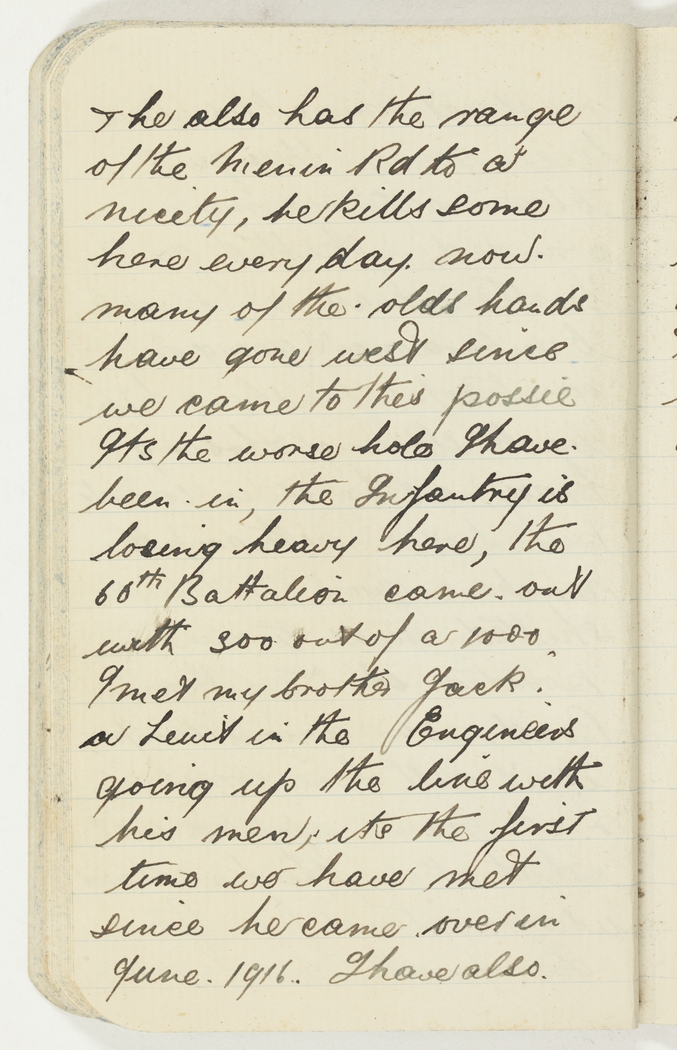 & he also has the range
of the Menin Rd to a
nicety, he kills some
here every day. now.
many of the olds hands
have gone west since
we came to this possie
Its the worse hole I have.
been in, the Infantry is
losing heavy here, the
60th Battalion came. out
with 300 out of a 1000
I met my brother Jack.
a Leuit in the Engineers
going up the line with
his men, its the first
time we have met
since he came over in
June. 1916. I have also.